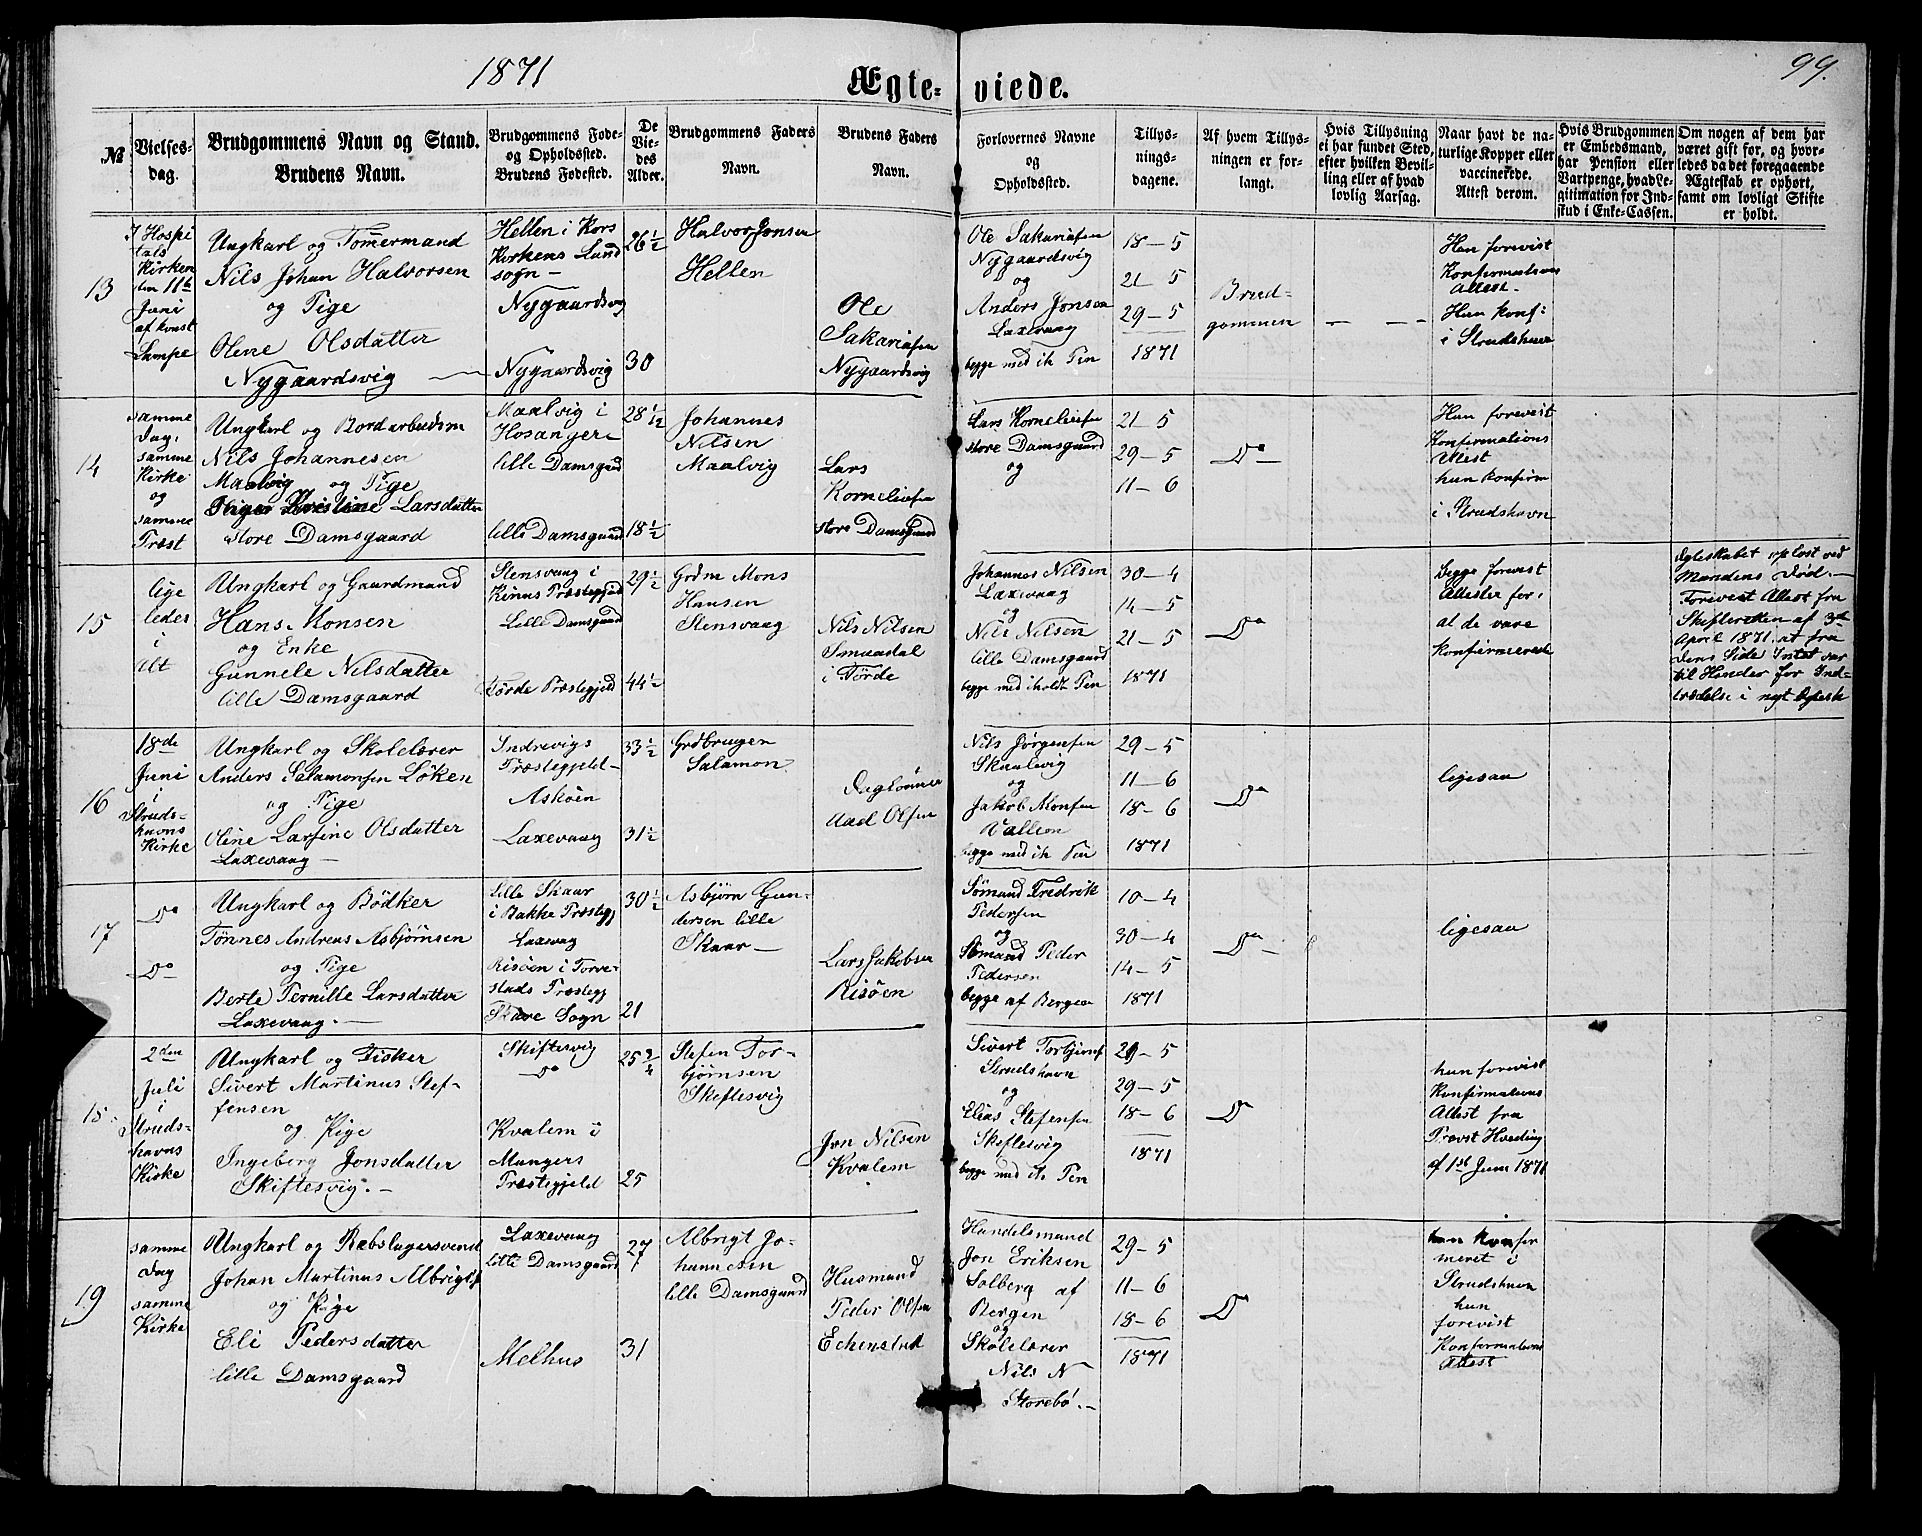 1871
Ægte-
viede.
99.
№
Vielses-
dag.
Brudgommens Navn og Stand.
Brudens Navn.
Brudgommens Føde-
og Opholdssted.
Brudens Fødested.
De
Vie-
des
Alder.
Brudgommens Faders
Navn.
Brudens Faders
Navn.
Forlovernes Navne
og
Opholdssted.
Tillys-
nings-
dagene.
Af hvem Tillys-
ningen er for-
langt.
Hvis Tillysning
ei har fundet Sted,
efter hvilken Bevil-
ling eller af hvad
lovlig Aarsag.
Naar havt de na-
turlige Kopper eller
vaccinerede.
Attest derom.
Hvis Brudgommen
er Embedsmand,
har Pension eller
Vartpenge, hvad Le-
gitimation for Ind-
skud i Enke-Cassen.
Om nogen af dem har
været gift før, og hvor-
ledes da det foregaaende
Ægteskab er ophørt,
samt om lovligt Skifte
er holdt.
13
I Hospi
tals
Kirken
den 11te
Juni
af konst
Lampe
Ungkarl og Tömermand
Nils Johan Halvorsen
og Pige
Olene Olsdatter
Nygaardsvig
Hellen i Kors
Kirkens Land
sogn —
Nygaardsvig
Nygaardsvig
26 1/2
30
Halvor Jonsen
Hellen
Ole
Sakariasen
Nygaardsvig
Ole Sakariasen
Nygaardsvig
og
Anders Jonsen
Laxevaag
begge med ih. Pen
18 — 5
21 — 5
29 — 5
1871
Brud-
gommen
Han forevist
Konfirmations
Attest.
Hun konf:
i Strudshavn
14
samme
Dag,
samme
Kirke
og
samme
Præst
Ungkarl og Bordarbeidsm
Nils Johannesen
Maalvig og Pige
Kristine Larsdatter
store Damsgaard
Maalvig i
Hosanger
lille Damsgaard
lille Damsgaard
28 1/12
18 1/2
Johannes
Nilsen
Maalvig
Lars
Korneliusen
store Damsgaard
Lars Korneliusen
store Damsgaard
og
21 — 5
29 — 5
11 — 6
Do —
Han forevist
Konfirmations
Attest
hun konfirm
i Strudshavn
15
lige
ledes
i
Alt
Ungkarl og Gaardmand
Hans Monsen
og Enke
Gunnele Nilsdatter
lille Damsgaard
Stensvaag i
Kinns Præstegjeld
Lille Damsgaard
Förde Præstegjeld
29 1/2
44 1/2
Grdm Mons
Hansen
Stensvaag
Nils Nilsen
Smaadal
i Förde
Johannes Nilsen
Laxevaag
og
Nils Nilsen
lille Damsgaard
begge med iholdt Pen
30 — 4
14 — 5
21 — 5
1871
Do
begge forevist
Attester for,
at de vare
konfirmerede
Ægteskabet opløst ved
Mandens Død. —
Forevist Attest fra
Skifteretten af 3die
April 1871, at fra
dens Side Intet var
til Hinder for Ind-
trædelse i nyt Ægtesk
16
18de
Juni
i
Struds-
havns
Kirke
Ungkarl og Skolelærer
Anders Salamonsen Löken
og Pige
Oline Larsine Olsdatter
Laxevaag —
Indrevigs
Præstegjeld —
Asköen
Laxevaag
33 1/2
31 1/2
Grdbrugen
Salamon
Daglönner
Aad Olsen
Nils Jörgensen
Skaalevig
og
Jakob Monsen
begge med ih. Pen
29 — 5
11 — 6
18 — 6
1871
Do
ligesaa
17
Do
Do
Ungkarl og Bödker
Tönnes Andreas Asbjörnsen
og Pige
Berte Pernille Larsdatter
Laxevaag. —
Lille Skaar
i Bakke Præstegj
Laxevaag
Risöen i Torve-
stads Præstegj
Skaare Sogn
30 1/2
21
Asbjörn Gun-
dersen lille
Skaar —
Lars Jakobsen
Risöen
Sömand Fredrik
Pedersen
og
Sömand Peder
Pedersen
begge af Bergen
10 — 4
30 — 4
14 — 5
1871
Do —
ligesaa
18
2den
Juli
i
Struds-
havns
Kirke
Ungkarl og Fisker
Sivert Martinus Stef-
fensen
og Pige
Ingeborg Jonsdatter
Skiftesvig. —
Skiftesvig
Do
Kvalem i
Mangers
Præstegjeld
25 3/4
25
Stefen Tor-
bjørnsen
Skeftesvig
Jon Nilsen
Kvalem
Sivert Torbjörns
Strudshavn
og
Elias Stefensen
Skeftesvig
begge med ih. Pen
21 — 5
29 — 5
18 — 6
1871
Do
hun forevist
Konfirmations
Attest fra
Provst Hvoding
af 1ste Juni 1871
19
samme
Dag
samme
Kirke
Ungkarl og Rebslagersvend
Johan Martinus Albrigts
og Pige
Eli Pedersdatter
lille Damsgaard
Laxevaag
lille Damsgaard
Melhus
27
31
Albrigt Jo-
hannesen
lille Damsgaard
Husmand
Peder Olsen
Echenstad
Handelsmand
Jon Eriksen
Solberg af
Bergen
og
Skolelærer
Nils N
Storebö. —
29 — 5
11 — 6
18 — 6
1871
Do
han konfir
meret i
Strudshavn
hun
forevist
Konfirmations
Attest